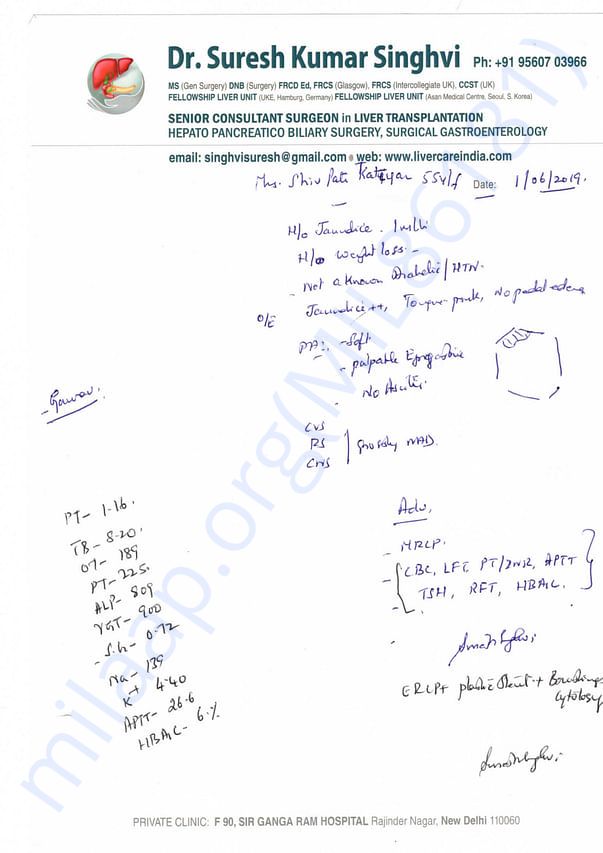 Dr. Suresh Kumar Singhvi Ph: +91 95607 03966
MS (Gen Surgery) DNB (Surgery) FRCD Ed, FRCS (Glasgow), FRCS (Intercollegiate UK), CCST (UK)
FELLOWSHIP LIVER UNIT (UKE, Hamburg, Germany) FELLOWSHIP LIVER UNIT (Asan Medical Centre, Seoul, S. Korea)
SENIOR CONSULTANT SURGEON in LIVER TRANSPLANTATION
HEPATO PANCREATICO BILIARY SURGERY, SURGICAL GASTROENTEROLOGY
email: singhvisuresh@gmail.com • web: www.livercareindia.com
Mrs. Shiv Pati Katiyar 55y/f Date: 1/06/2019.
H/o Jaundice.
H/o weight loss -
- Not a known Diabetic/HTN.
O/E Jaundice++, Tongue pink, No pedal edema
PA: - Soft
- palpable Epigastric
- No Ascites
Gaurav.
CVS
RS
CNS
grossly NAD.
PT- 1.16.
TB- 8.20.
OT- 189
PT- 225.
ALP- 809
γGT- 900
- 0.72
Na- 139
K+ 4.40
APTT- 26.6
HBAIC- 6.%
Adv,
- MRCP.
- CBC, LFT, PT/INR, APTT
TSH, RFT, HBAIC.
ERCP+ plastic stent + Brushings
cytology
PRIVATE CLINIC: F 90, SIR GANGA RAM HOSPITAL Rajinder Nagar, New Delhi 110060
milaap.org(MIL86181)